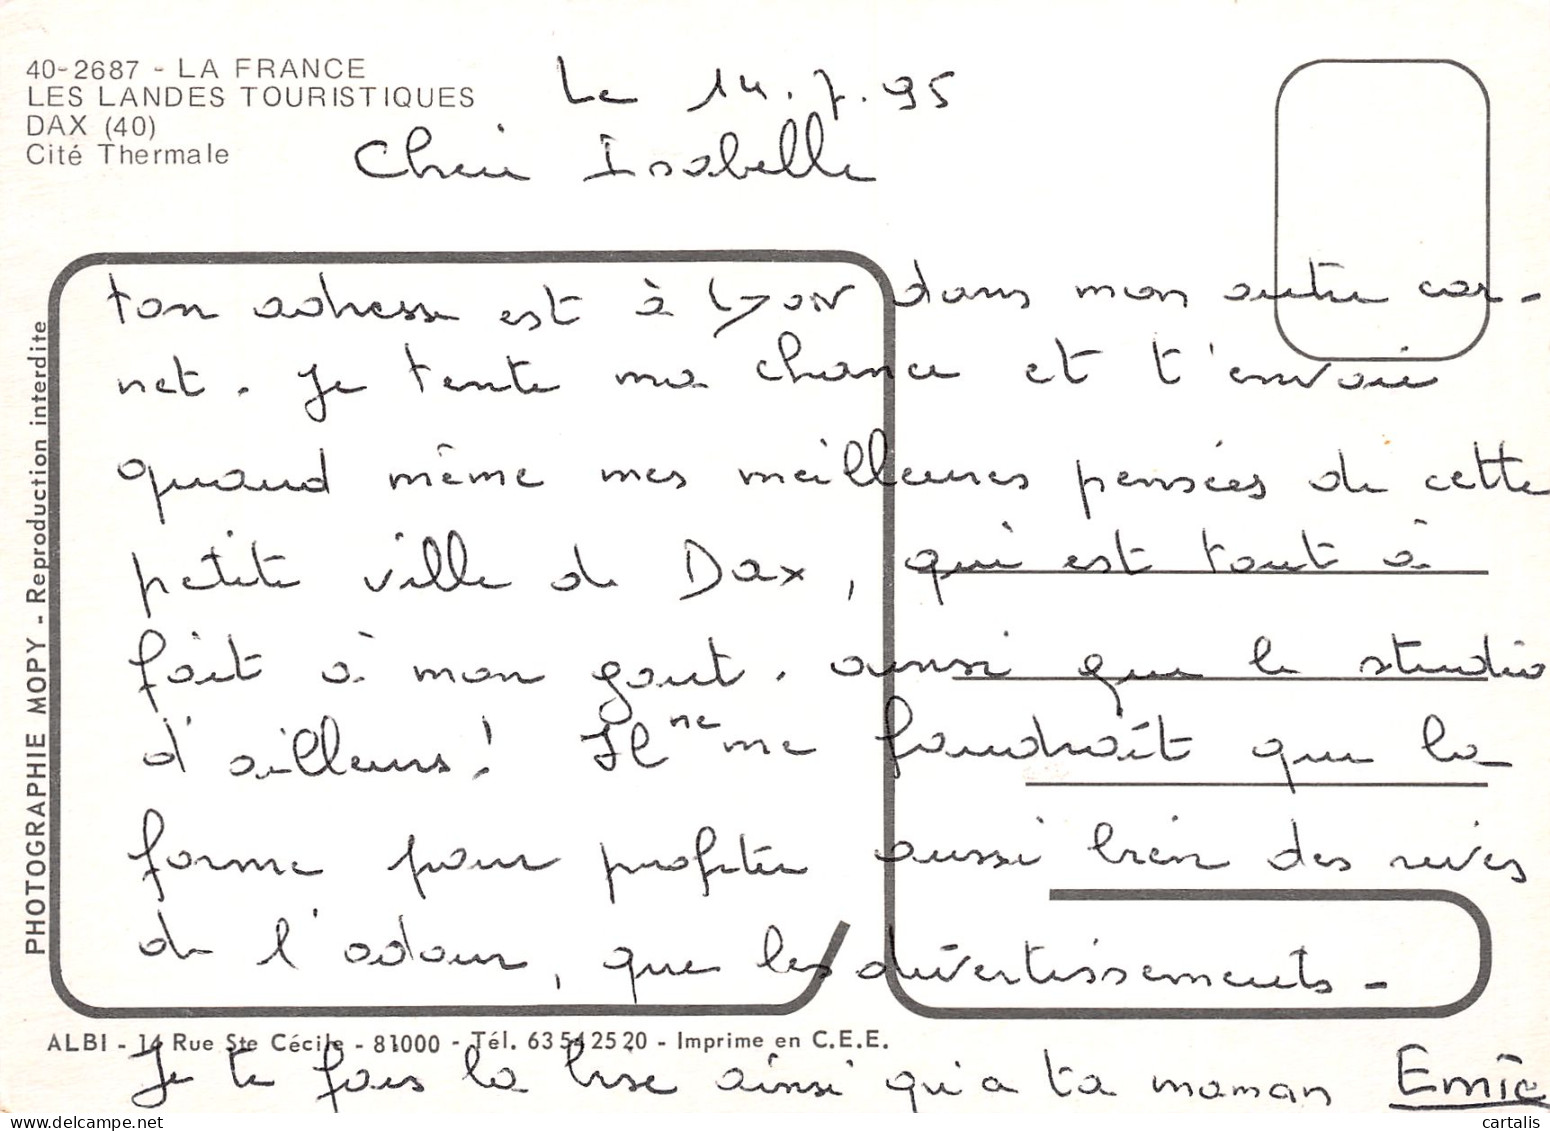 40-2687 - LA FRANCE
LES LANDES TOURISTIQUES
DAX (40)
Cité Thermale
Le 14.7.95
Cherie Isabelle
ton adresse est à Lyon dans mon autre car-
net. Je tente ma chance et t'envoie
quand même mes meilleures pensées de cette
petite ville de Dax, qui est tout à
fait à mon gout. ainsi que le studio
d'ailleurs! Il ne me faudrait que la
forme pour profiter aussi bien des rives
de l'adour, que les divertissements -
Je te fais la bise ainsi qu'a ta maman
PHOTOGRAPHIE MOPY - Reproduction interdite
ALBI - 14 Rue Ste Cécile - 81000 - Tél. 63 54 25 20 - Imprime en C.E.E.
www.delcampe.net
cartalis